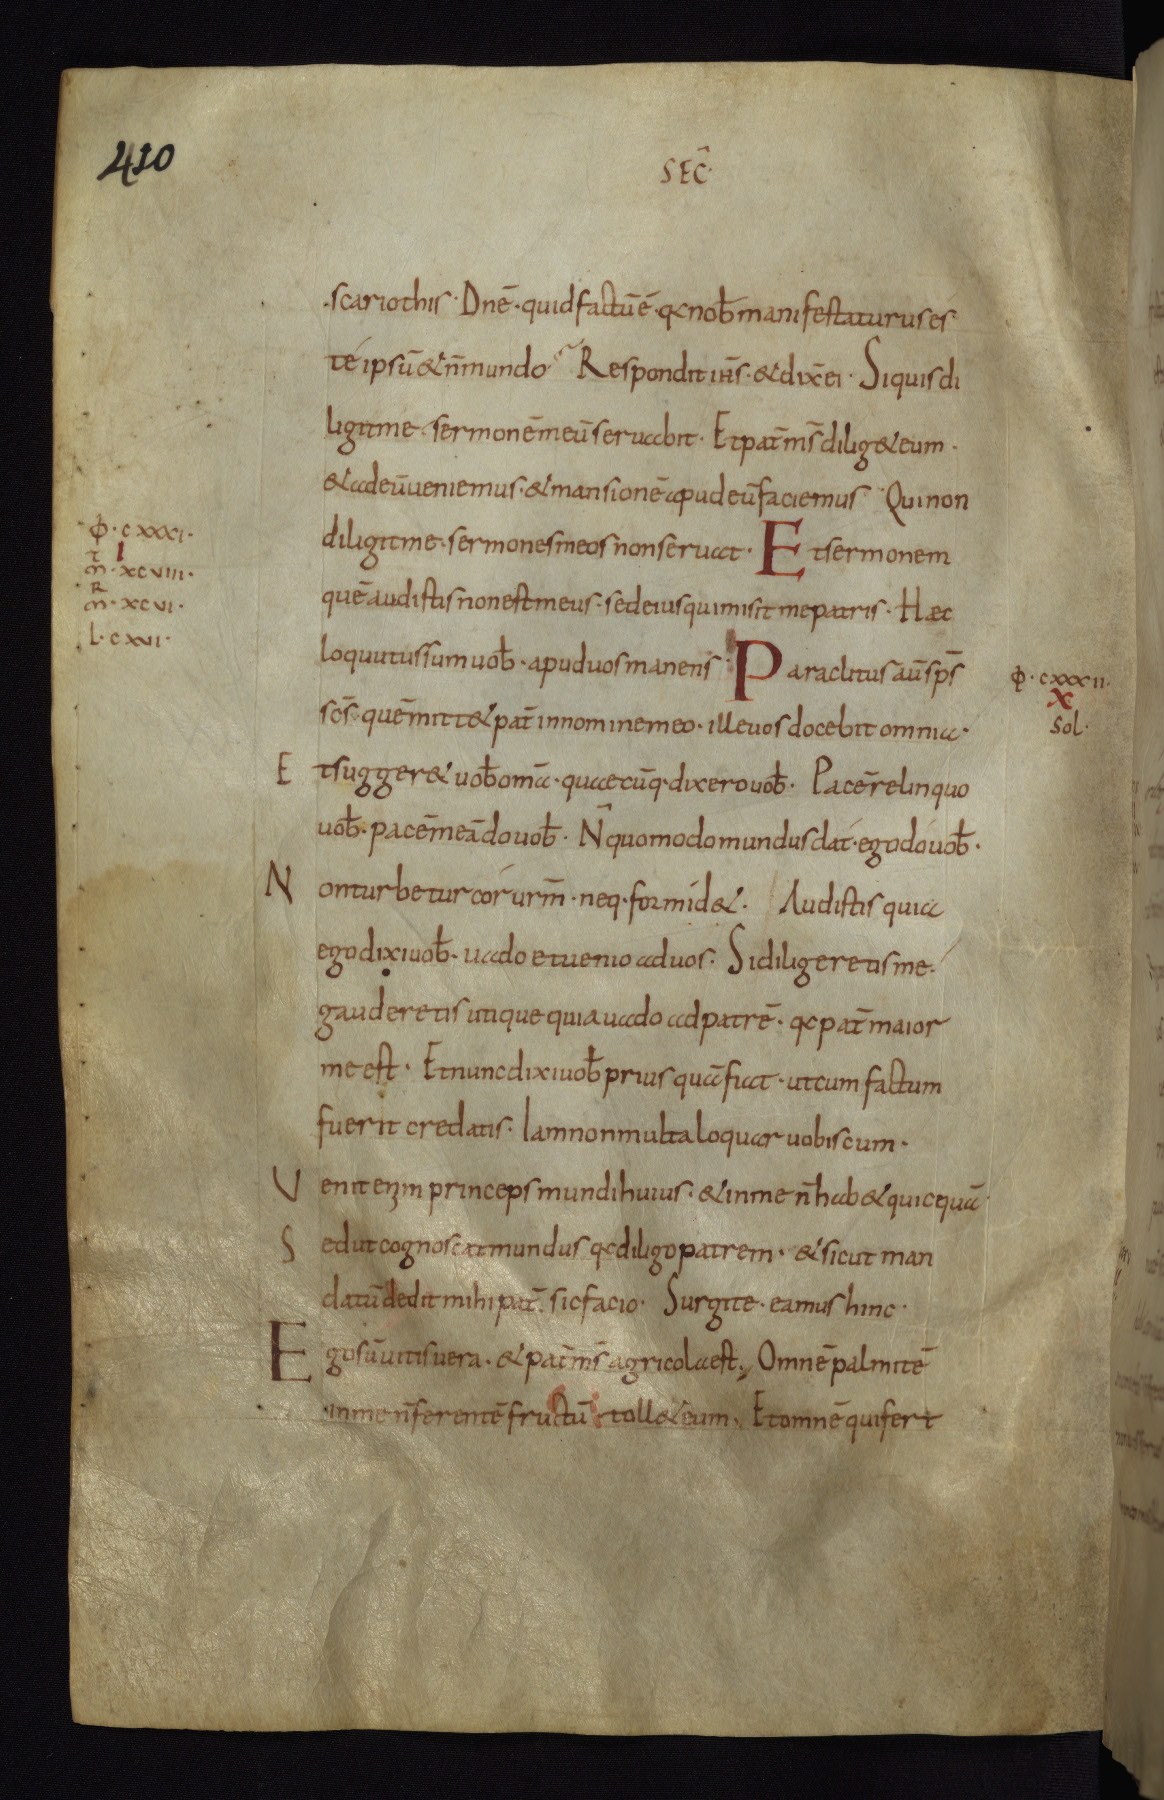 410
SEC̄·
scariothis· Dnē· quid factū ē· qꝫ nob̄ manifestaturus es
te ipsū & n̄ mundo Respondit ih̄s· & dix̄ ei· Si quis di
ligit me· sermonē meū seruabit· Et pat̄ m̄s dilig& eum·
& ad eū ueniemus· & mansionē apud eū faciemus Qui non
diligit me· sermones meos non seruat· Et sermonem
φ· cxxxi·
I
m̄t· xcviii·
m̄R· xcvi·
L· cxvi·
quē audistis non est meus· sed eius qui misit me patris· Haec
loquutus sum uob̄· apud uos manens· Paraclitus aū sp̄s
φ· cxxxii·
X
sol·
sc̄s· quē mitt& pat̄ in nomine meo· ille uos docebit omnia·
Et sugger& uob̄ om̄a· quaecūq· dixero uob̄· Pacē relinquo
uob̄· pacē meā do uob̄· N̂ quomodo mundus dat· ego do uob̄·
Non turbetur cor urm̄· neq· formid&· Audistis quia
ego dixi uob̄· uado et uenio ad uos· Si diligeretis me·
gauderetis utique quia uado ad patrē· qꝫ pat̄ maior
me est· Et nunc dixi uob̄ prius quā fiat· ut cum factum
fuerit credatis· Iam non multa loquar uobiscum·
Venit enim princeps mundi huius· & in me n̄ hab& quicquā·
Sed ut cognoscat mundus qꝫ diligo patrem· & sicut man
datū dedit mihi pat̄· sic facio· Surgite· eamus hinc·
Ego sū uitis uera· & pat̄ m̄s agricola est· Omnē palmitē
in me n̄ ferentē fructū· toll& eum· Et omnē qui fert